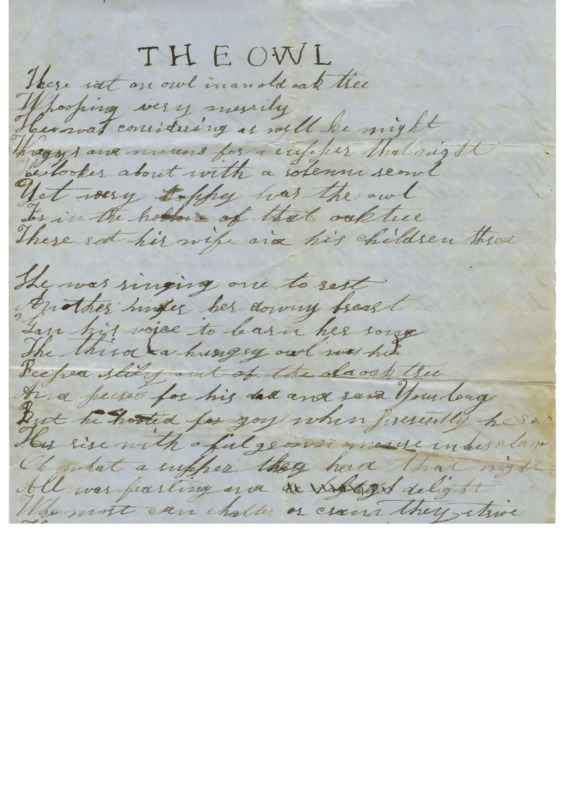 THE OWL
There sat an owl in an old oak tree
Whooping very merrily
He was considering as well he might
Ways and means for a supper that night
He looked about with a solemn scowl
Yet very happy was the owl
For in the hollow of that oak tree
There sat his wife and his children three
She was singing one to rest
Another under her downy breast
his voice to learn her song
The third a hungry owl was he
Peeped slily out of the old oak tree
And peered for his dad and said Your long
But he hooted for joy when presently he
Her rise with a full grown mouse in his claw
Oh what a supper they had that night
All was feasting and delight
Who most can chatter or cram they strive